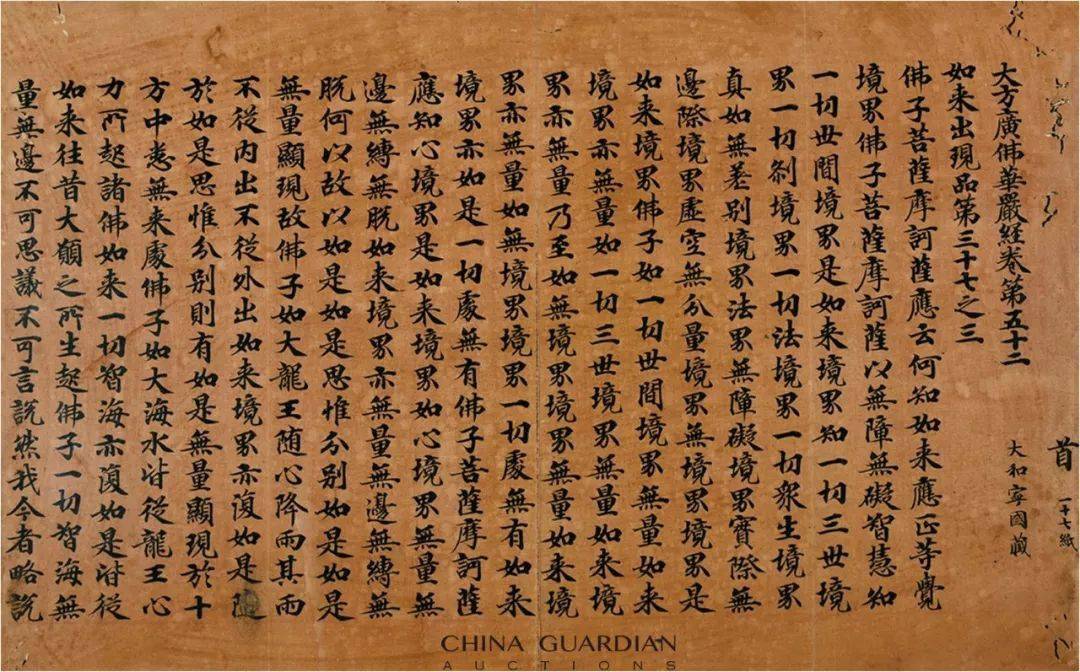 首 一十七紙
大和寧國藏
大方廣佛華嚴経卷第五十二
如来出現品第三十七之三
佛子菩薩摩訶薩應云何知如来應正等覺
境界佛子菩薩摩訶薩以無障無礙智慧知
一切世間境界是如来境界知一切三世境
界一切刹境界一切法境界一切衆生境界
真如無差别境界法界無障礙境界實際無
邊際境界虛空無分量境界無境界境界是
如来境界佛子如一切世間境界無量如来
境界亦無量如一切三世境界無量如来境
界亦無量乃至如無境界境界無量如来境
界亦無量如無境界境界一切處無有如来
境界亦如是一切處無有佛子菩薩摩訶薩
應知心境界是如来境界如心境界無量無
邊無縛無脱如来境界亦無量無邊無縛無
脱何以故以如是如是思惟分别如是如是
無量顯現故佛子如大龍王随心降雨其雨
不從内出不從外出如来境界亦復如是隨
於如是思惟分别則有如是無量顯現於十
方中悉無来處佛子如大海水皆從龍王心
力所起諸佛如来一切智海亦復如是皆從
如来往昔大願之所生起佛子一切智海無
量無邊不可思議不可言説然我今者略説
CHINA GUARDIAN
AUCTIONS